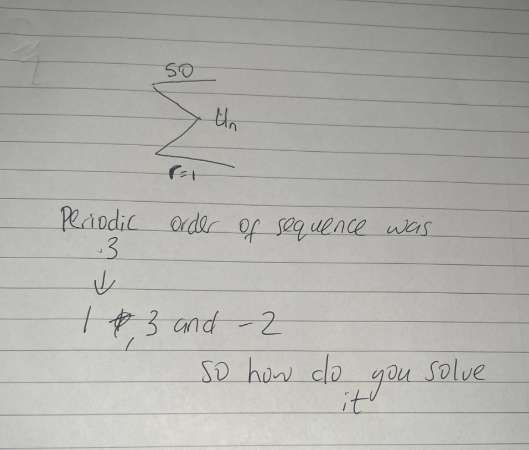 50
∑ Un
r=1
Periodic order of sequence was
.3
↓
1, 3 and -2
so how do you solve
it